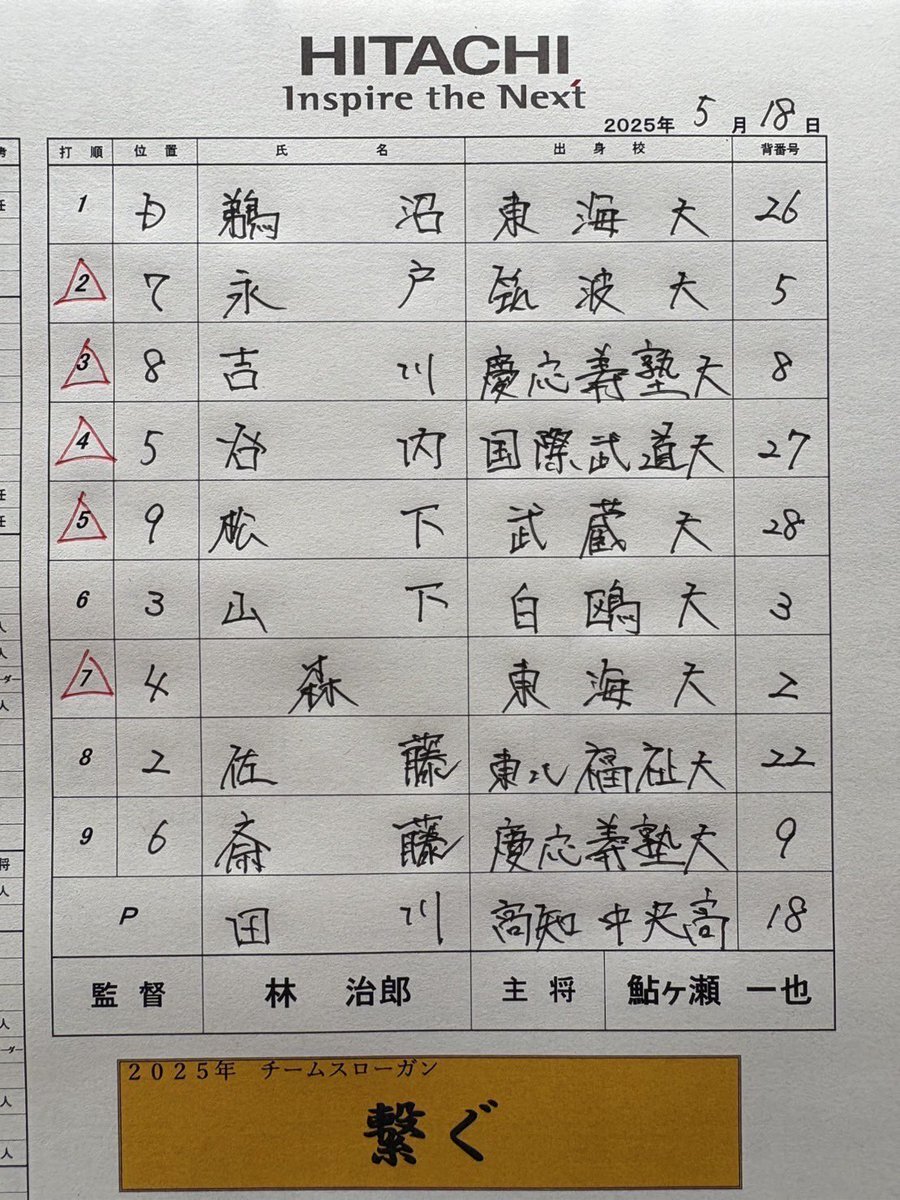 HITACHI
Inspire the Next
2025年 5月 18日
打順 位置 氏名 出身校 背番号
1 D 鵜沼 東海大 26
2 7 永戸 筑波大 5
3 8 吉川 慶応義塾大 8
4 5 谷内 国際武道大 27
5 9 松下 武蔵大 28
6 3 山下 白鴎大 3
7 4 森 東海大 2
8 2 佐藤 東北福祉大 22
9 6 斎藤 慶応義塾大 9
P 田川 高知中央高 18
監督 林 治郎 主将 鮎ヶ瀬 一也
2025年 チームスローガン
繋ぐ